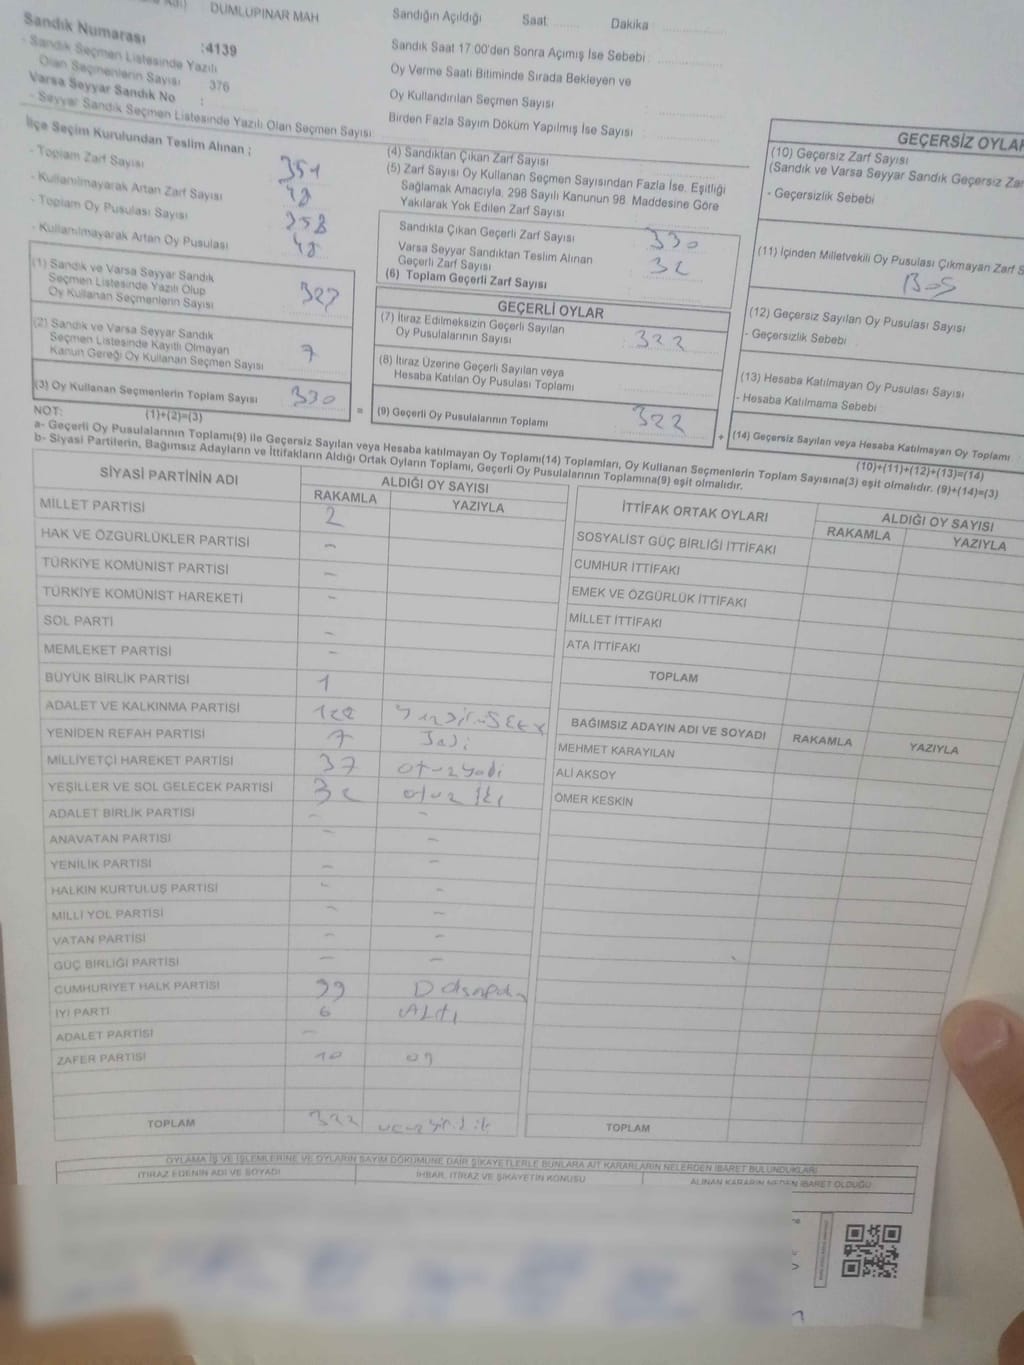 DUMLUPINAR MAH
Sandık Numarası :4139
- Sandık Seçmen Listesinde Yazılı
Olan Seçmenlerin Sayısı 376
Varsa Seyyar Sandık No :
- Seyyar Sandık Seçmen Listesinde Yazılı Olan Seçmen Sayısı
Sandığın Açıldığı Saat Dakika
Sandık Saat 17:00'den Sonra Açımış İse Sebebi
Oy Verme Saati Bitiminde Sırada Bekleyen ve
Oy Kullandırılan Seçmen Sayısı
Birden Fazla Sayım Döküm Yapılmış İse Sayısı
İlçe Seçim Kurulundan Teslim Alınan ;
- Toplam Zarf Sayısı
- Kullanılmayarak Artan Zarf Sayısı 48
- Toplam Oy Pusulası Sayısı 358
- Kullanılmayarak Artan Oy Pusulası 48
(1) Sandık ve Varsa Seyyar Sandık
Seçmen Listesinde Yazılı Olup
Oy Kullanan Seçmenlerin Sayısı
(2) Sandık ve Varsa Seyyar Sandık
Seçmen Listesinde Kayıtlı Olmayan
Kanun Gereği Oy Kullanan Seçmen Sayısı 7
(3) Oy Kullanan Seçmenlerin Toplam Sayısı 330
(1)+(2)=(3)
(4) Sandıktan Çıkan Zarf Sayısı
(5) Zarf Sayısı Oy Kullanan Seçmen Sayısından Fazla İse, Eşitliği
Sağlamak Amacıyla, 298 Sayılı Kanunun 98. Maddesine Göre
Yakılarak Yok Edilen Zarf Sayısı
Sandıkta Çıkan Geçerli Zarf Sayısı 330
Varsa Seyyar Sandıktan Teslim Alınan
Geçerli Zarf Sayısı 32
(6) Toplam Geçerli Zarf Sayısı
GEÇERLİ OYLAR
(7) İtiraz Edilmeksizin Geçerli Sayılan
Oy Pusulalarının Sayısı 322
(8) İtiraz Üzerine Geçerli Sayılan veya
Hesaba Katılan Oy Pusulası Toplamı
= (9) Geçerli Oy Pusulalarının Toplamı 322 +
GEÇERSİZ OYLAR
(10) Geçersiz Zarf Sayısı
(Sandık ve Varsa Seyyar Sandık Geçersiz
- Geçersizlik Sebebi
(11) İçinden Milletvekili Oy Pusulası Çıkmayan Zarf
Boş
(12) Geçersiz Sayılan Oy Pusulası Sayısı
- Geçersizlik Sebebi
(13) Hesaba Katılmayan Oy Pusulası Sayısı
- Hesaba Katılmama Sebebi
(14) Geçersiz Sayılan veya Hesaba Katılmayan Oy Toplamı
(10)+(11)+(12)+(13)=(14)
NOT:
a- Geçerli Oy Pusulalarının Toplamı(9) ile Geçersiz Sayılan veya Hesaba katılmayan Oy Toplamı(14) Toplamları, Oy Kullanan Seçmenlerin Toplam Sayısına(3) eşit olmalıdır. (9)+(14)=(3)
b- Siyasi Partilerin, Bağımsız Adayların ve İttifakların Aldığı Ortak Oyların Toplamı, Geçerli Oy Pusulalarının Toplamına(9) eşit olmalıdır.
SİYASİ PARTİNİN ADI ALDIĞI OY SAYISI
RAKAMLA YAZIYLA
MİLLET PARTİSİ 2
HAK VE ÖZGÜRLÜKLER PARTİSİ -
TÜRKİYE KOMÜNİST PARTİSİ -
TÜRKİYE KOMÜNİST HAREKETİ -
SOL PARTİ -
MEMLEKET PARTİSİ -
BÜYÜK BİRLİK PARTİSİ 1
ADALET VE KALKINMA PARTİSİ
YENİDEN REFAH PARTİSİ 7
MİLLİYETÇİ HAREKET PARTİSİ 37
YEŞİLLER VE SOL GELECEK PARTİSİ 32 otuz iki
ADALET BİRLİK PARTİSİ - -
ANAVATAN PARTİSİ - -
YENİLİK PARTİSİ - -
HALKIN KURTULUŞ PARTİSİ - -
MİLLİ YOL PARTİSİ - -
VATAN PARTİSİ - -
GÜÇ BİRLİĞİ PARTİSİ - -
CUMHURİYET HALK PARTİSİ 99
İYİ PARTİ 6 Altı
ADALET PARTİSİ -
ZAFER PARTİSİ 10 on
TOPLAM 322
İTTİFAK ORTAK OYLARI ALDIĞI OY SAYISI
RAKAMLA YAZIYLA
SOSYALİST GÜÇ BİRLİĞİ İTTİFAKI
CUMHUR İTTİFAKI
EMEK VE ÖZGÜRLÜK İTTİFAKI
MİLLET İTTİFAKI
ATA İTTİFAKI
TOPLAM
BAĞIMSIZ ADAYIN ADI VE SOYADI RAKAMLA YAZIYLA
MEHMET KARAYILAN
ALİ AKSOY
ÖMER KESKİN
TOPLAM
OYLAMA İŞ VE İŞLEMLERİNE VE OYLARIN SAYIM DÖKÜMÜNE DAİR ŞİKAYETLERLE BUNLARA AİT KARARLARIN NELERDEN İBARET BULUNDUKLARI
İTİRAZ EDENİN ADI VE SOYADI İHBAR, İTİRAZ VE ŞİKAYETİN KONUSU ALINAN KARARIN NEDEN İBARET OLDUĞU